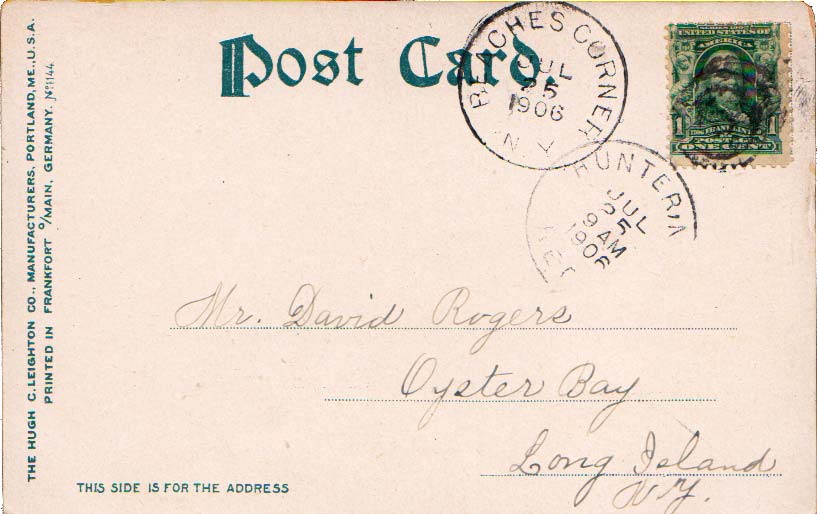 Post Card.
BEACHES CORNER
JUL
25
1906
N.Y.
SERIES 1902
UNITED STATES OF
AMERICA
1 FRANKLIN 1
POSTAGE
ONE CENT
HUNTER,
JUL
25
9 AM
1906
REC
Mr. David Rogers
Oyster Bay
Long Island
N.Y.
THIS SIDE IS FOR THE ADDRESS
THE HUGH C. LEIGHTON CO., MANUFACTURERS, PORTLAND, ME., U.S.A.
PRINTED IN FRANKFORT o/MAIN, GERMANY. No 1144